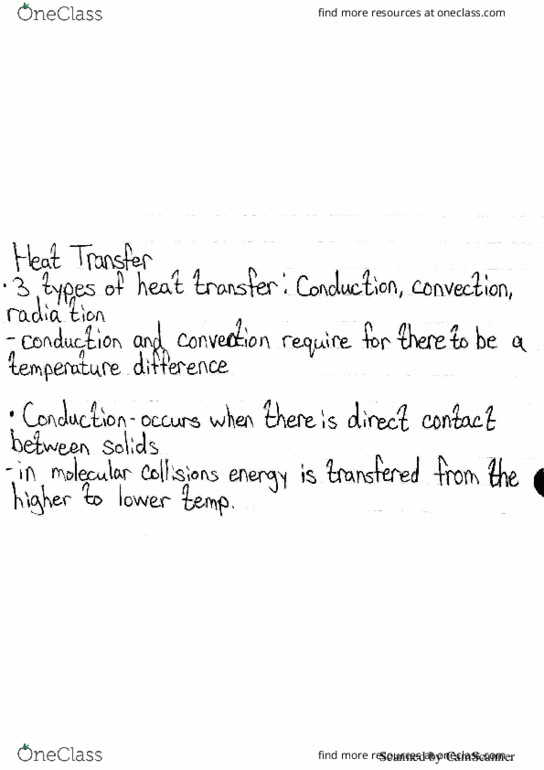 OneClass
find more resources at oneclass.com
Heat Transfer
• 3 types of heat transfer: Conduction, convection,
radiation
- conduction and convection require for there to be a
temperature difference
• Conduction - occurs when there is direct contact
between solids
- in molecular collisions energy is transfered from the
higher to lower temp.
OneClass
find more resources at oneclass.com
Scanned by CamScanner